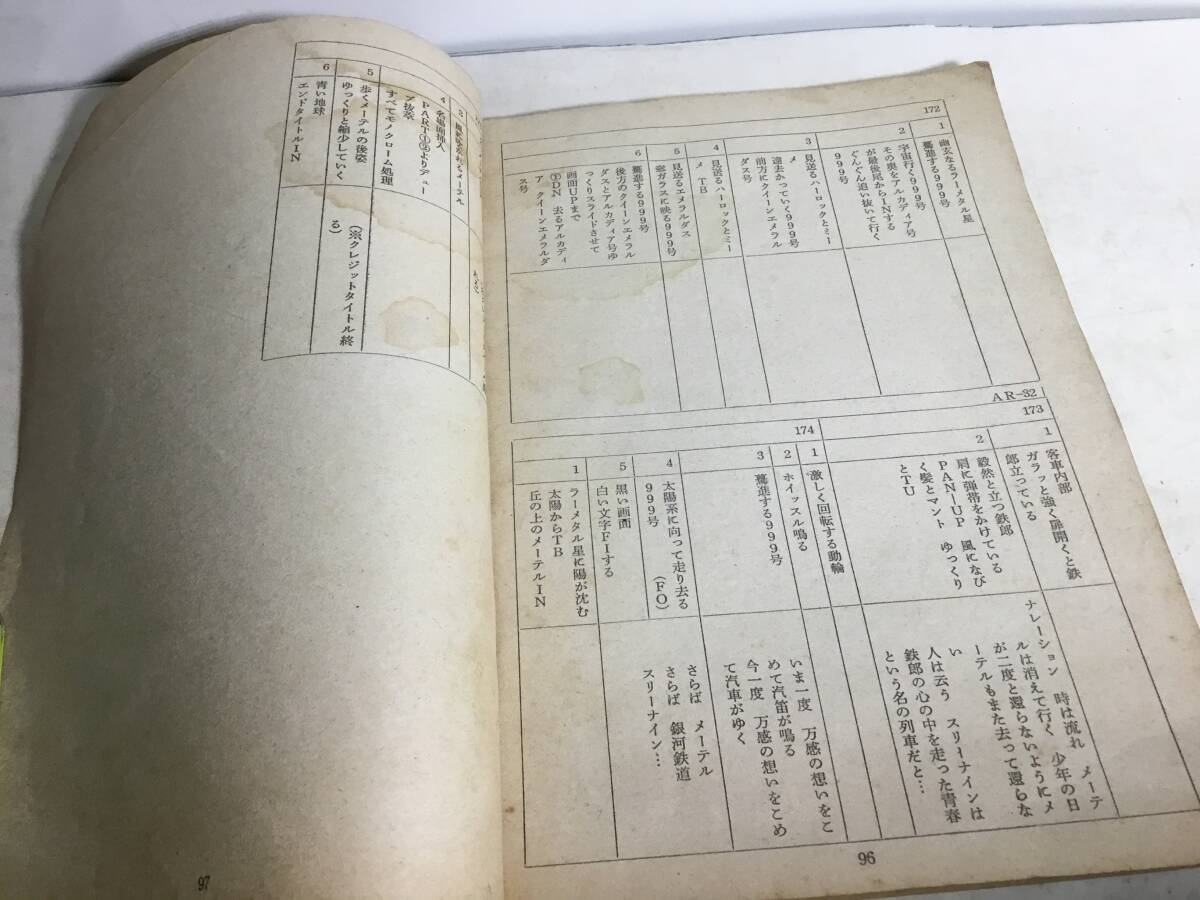 172
1
幽玄なるラーメタル星
驀進する999号
2
宇宙行く999号
その奥をアルカディア号
が最後尾からINする
ぐんぐん追い抜いて行く
999号
3
見送るハーロックとミー
メ
遠去かっていく999号
前方にクイーンエメラル
ダス号
4
見送るハーロックとミー
メ TB
5
見送るエメラルダス
窓ガラスに映る999号
6
驀進する999号
後方のクイーンエメラル
ダスとアルカディア号ゆ
っくりスライドさせて
画面UPまで
DN 去るアルカディ
ア クイーンエメラルダ
ス号
AR-32
173
1
客車内部
ガラッと強く扉開くと鉄
郎立っている
2
毅然と立つ鉄郎
肩に弾帯をかけている
PAN-UP 風になび
く髪とマント ゆっくり
とTU
ナレーション 時は流れ メーテ
ルは消えて行く 少年の日
が二度と還らないようにメ
ーテルもまた去って還らな
い
人は云う スリーナインは
鉄郎の心の中を走った青春
という名の列車だと…
174
1
激しく回転する動輪
2
ホイッスル鳴る
3
驀進する999号
いま一度 万感の想いをこ
めて汽笛が鳴る
今一度 万感の想いをこめ
て汽車がゆく
4
太陽系に向って走り去る
999号 (FO)
さらば メーテル
さらば 銀河鉄道
スリーナイン…
5
黒い画面
白い文字FIする
1
ラーメタル星に陽が沈む
太陽からTB
丘の上のメーテルIN
96
4
名場面挿入
PART よりデュー
プ抜萃
すべてモノクローム処理
5
歩くメーテルの後姿
ゆっくりと縮少していく
(※クレジットタイトル終
る)
6
青い地球
エンドタイトルIN
97